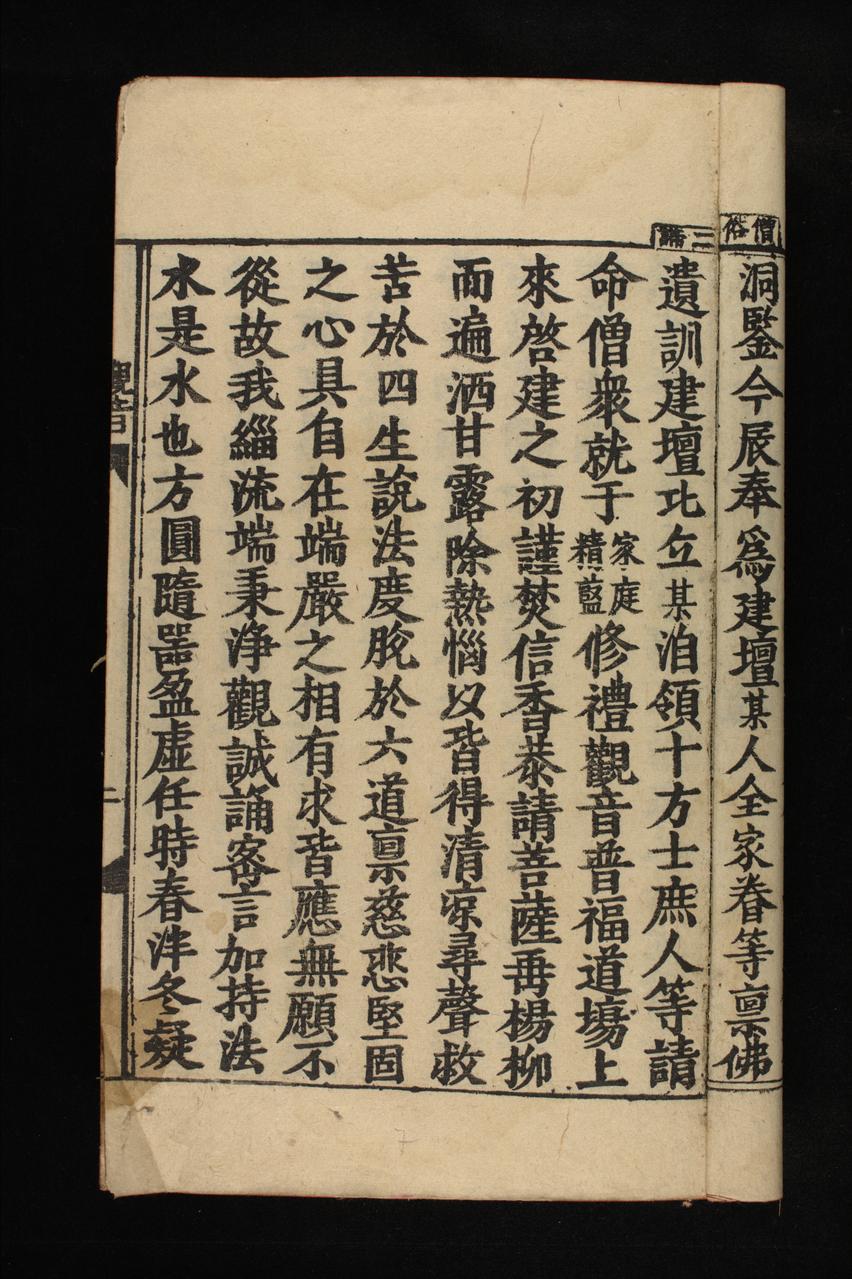 僧俗
洞鑒今辰奉爲建壇某人全家眷等稟佛
二請
遺訓建壇比丘某洎領十方士庶人等請
命僧衆就于家庭精藍修禮觀音普福道塲上
來啓建之初謹焚信香恭請菩薩再楊柳
而遍洒甘露除熱惱以皆得清凉尋聲救
苦於四生說法度脫於六道稟慈悲堅固
之心具自在端嚴之相有求皆應無願不
從故我緇流端秉浄觀誠誦密言加持法
水是水也方圓隨器盈虛任時春泮冬凝
觀音